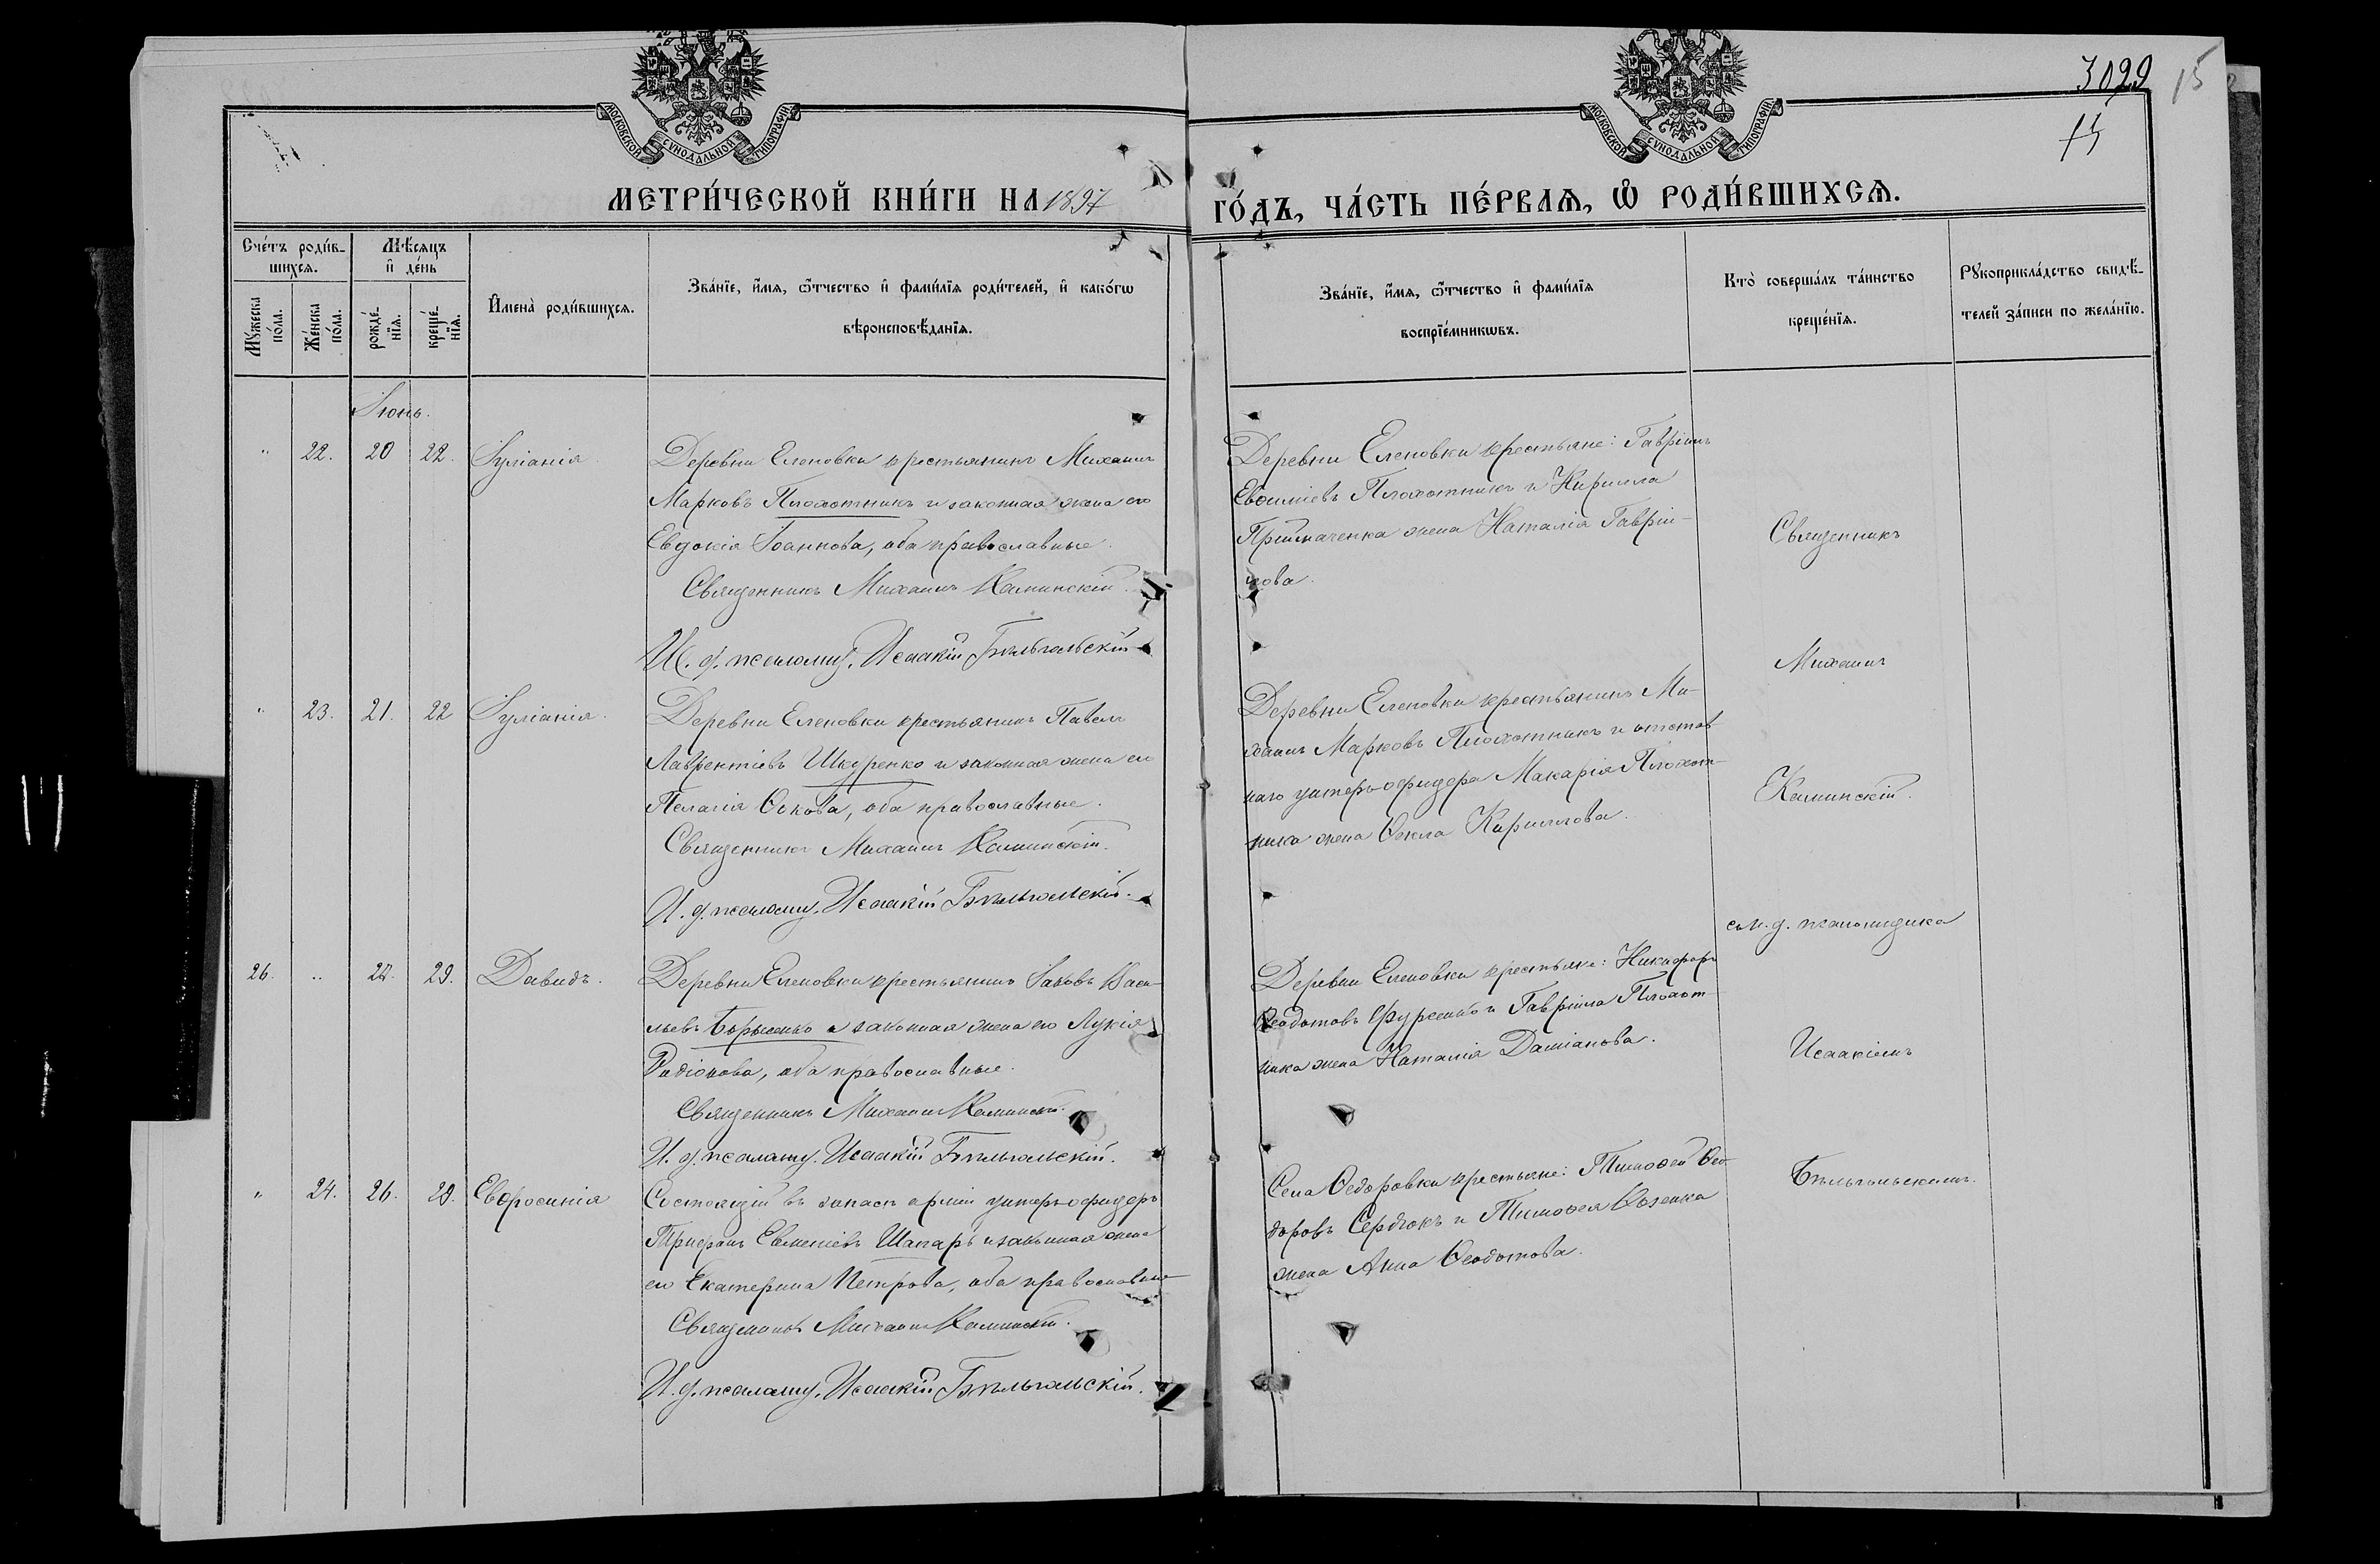 3029
15
15
МОСКОВСКОЙ СУНОДАЛЬНОЙ ТИПОГРАФІИ
МОСКОВСКОЙ СУНОДАЛЬНОЙ ТИПОГРАФІИ
МЕТРИ́ЧЕСКОЙ КНИ́ГИ НА 1897 ГО́ДЪ, ЧА́СТЬ ПЕ́РВАѦ, Ѡ РОДИ́ВШИХСѦ.
Сче́тъ роди́в-
шихся.
Мѣ́сяцъ
и҆ де́нь
Му́жеска
по́ла.
Же́нска
по́ла.
рожде́-
нїя.
креще́-
нїя.
И҆мена̀ роди́вшихся.
Зва́нїе, и҆́мя, ѻ҆́тчество и҆ фами́лїя роди́телей, и҆ како́гѡ
вѣроисповѣ́данїя.
Зва́нїе, и҆́мя, ѻ҆́тчество и҆ фами́лїя
воспрїе́мникѡвъ.
Кто̀ соверша́лъ та́инство
креще́нїя.
Рꙋкоприкла́дство свидѣ́-
телей за́писи по жела́нїю.
Іюнь.
" 22. 20 22. Іуліанія
Деревни Еленовки крестьянинъ Михаилъ
Марковъ Плохотникъ и законная жена его
Евдокія Іоаннова, оба православные.
Священникъ Михаилъ Каминскій.
И. д. псаломщ. Исаакій Бѣльгольскій
Деревни Еленовки крестьяне: Гавріилъ
Евѳиміевъ Плохотникъ и Кирилла
жена Наталія Гаврі-
лова.
" 23. 21. 22 Іуліанія.
Деревни Еленовки крестьянинъ Павелъ
Лаврентіевъ Шкуренко и законная жена его
Пелагія Ѳокова, оба православные.
Священникъ Михаилъ Каминскій.
И. д. псаломщ. Исаакій Бѣльгольскій.
Деревни Еленовки крестьянинъ Ми-
хаилъ Марковъ Плохотникъ и отстав
наго унтеръ-офицера Макарія Плохот-
ника жена Ѳекла Кириллова.
26. " 27. 29. Давидъ.
Деревни Еленовки крестьянинъ Іаковъ Васи-
льевъ и законная жена его Лукія
Радіонова, оба православные.
Священникъ Михаилъ Каминскій.
И. д. псаломщ. Исаакій Бѣльгольскій.
Деревни Еленовки крестьяне: Никифоръ
Ѳеодотовъ и Гавріила Плохот
ника жена Наталія Даміанова.
" 24. 26. 29. Евфросинія
Состоящій въ запасѣ арміи унтеръ-офицеръ
Трифонъ Евменіевъ Шапаръ и законная жена
его Екатерина Петрова, оба православные
Священникъ Михаилъ Каминскій.
И. д. псаломщ. Исаакій Бѣльгольскій.
Села Ѳедоровки крестьяне: Тимоѳей Ѳео-
доровъ Сердюкъ и Тимоѳея
жена Анна Ѳеодотова.
Священникъ
Михаилъ
Каминскій.
съ и. д. псаломщика
Исаакіемъ
Бѣльгольскимъ.